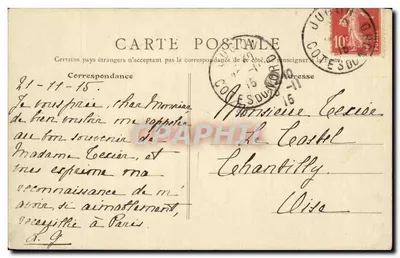 CARTE POSTALE
Certains pays étrangers n'acceptent pas la correspondance de ce côté. (Se renseigner)
Correspondance
Adresse
21-11-15.
Je vous prie, cher Monsieur
de bien vouloir me rappeler
au bon souvenir de
Madame Texier, et
vous exprime ma
reconnaissance de m'
avoir si aimablement,
recueillie à Paris.
Monsieur Texier
Le Castel
Chantilly
Oise
JUGON
COTES DU NORD
15
JUGON
COTES DU NORD
10